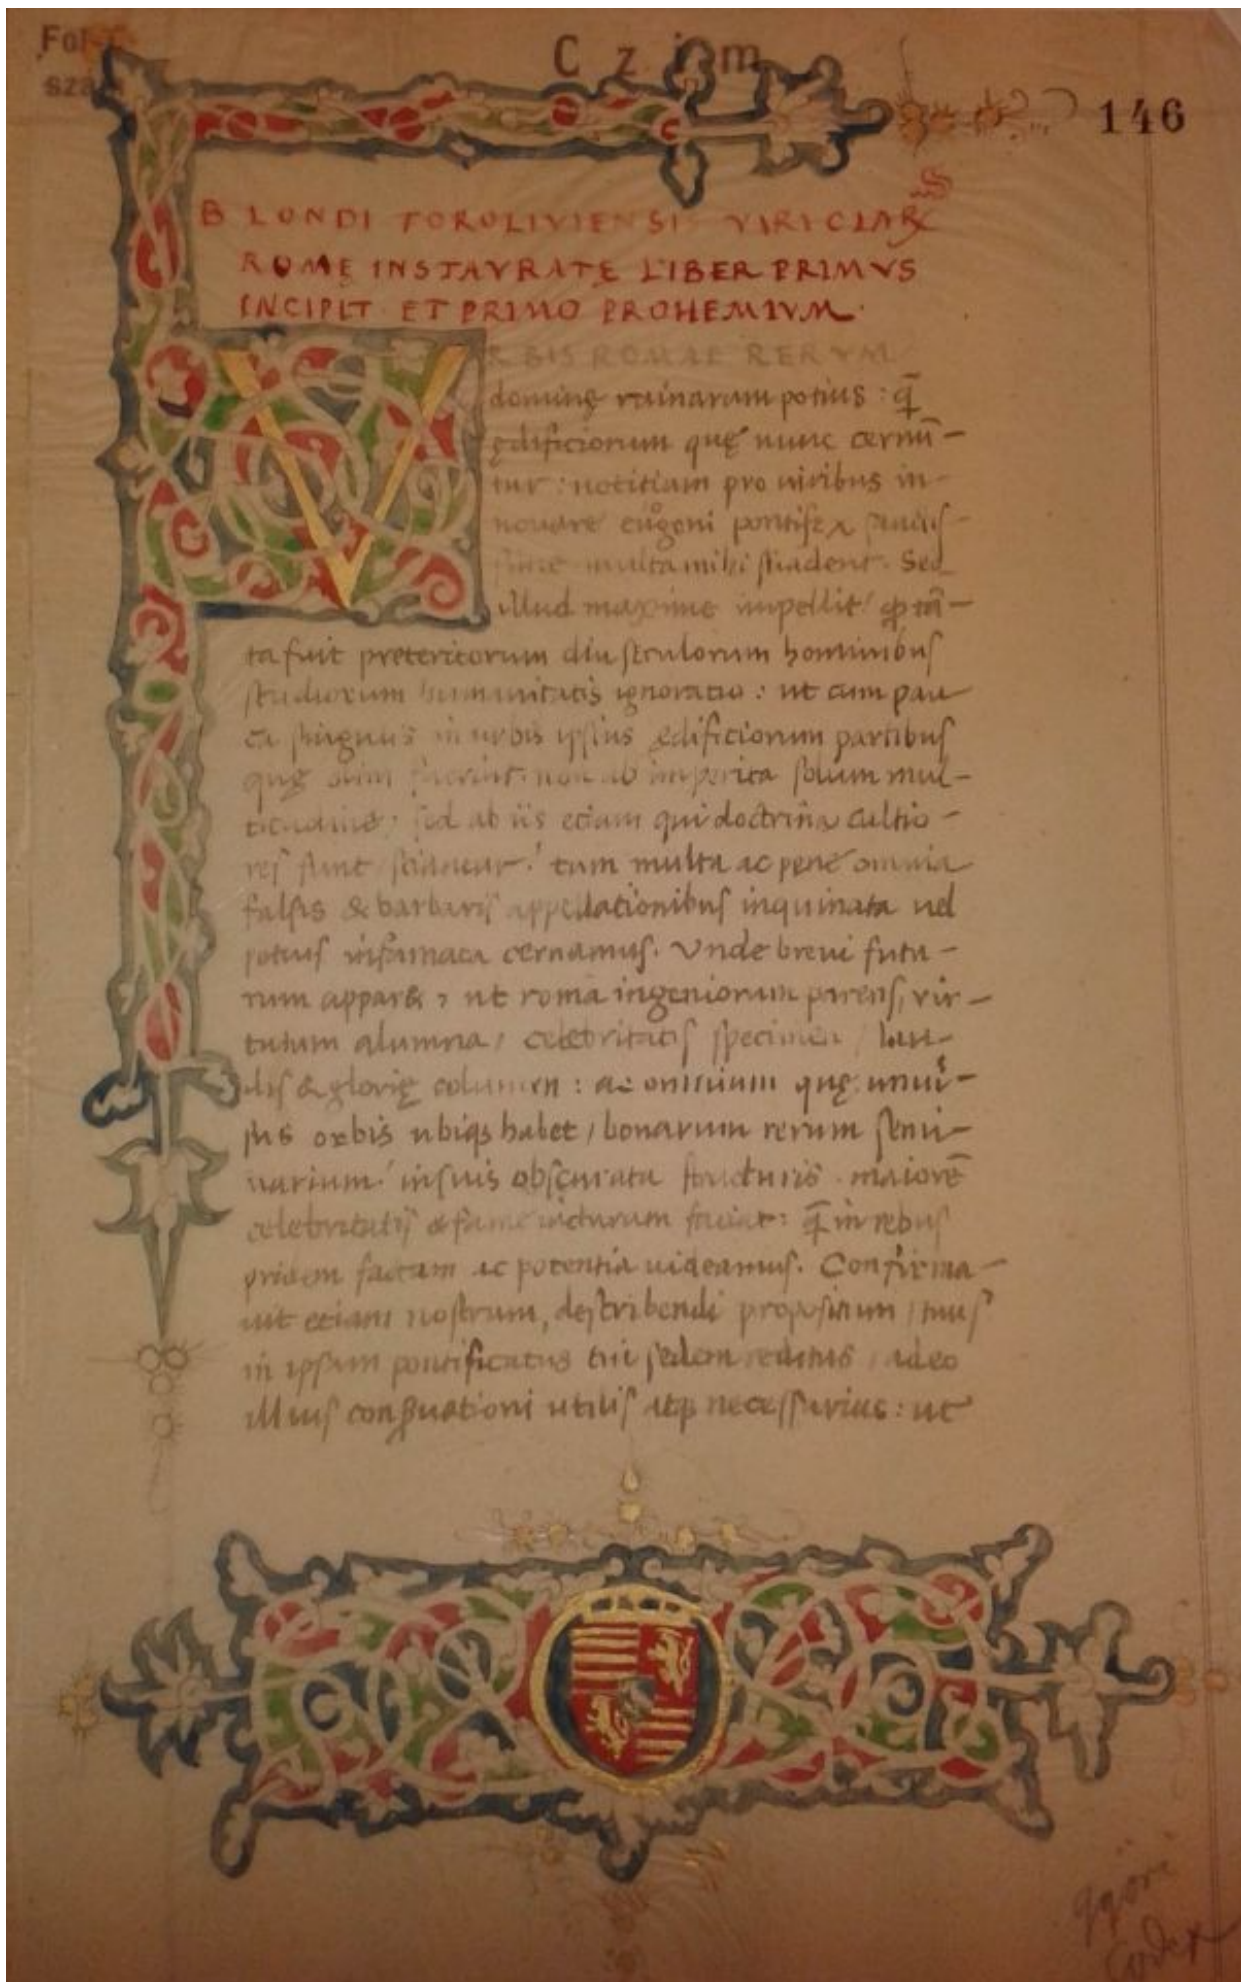 Fol
sza
C z i m
146
S
B LONDI FOROLIVIENSIS VIRI CLAR
ROMĘ INSTAVRATĘ LIBER PRIMVS
INCIPIT ET PRIMO PROHEMIVM.
V
RBIS ROMAE RERVM
dominę ruinarum potius : q̄
ędificiorum quę nunc cernū-
tur : notitiam pro viribus in-
novare eugeni pontifex sanctis-
sime multa mihi suadent. Sed
illud maxime impellit tā-
ta fuit preteritorum diu seculorum hominibus
studiorum humanitatis ignoratio : ut cum pau-
ca in urbis ipsius ędificiorum partibus
quę olim fuerint non ab imperita solum mul-
titudine, sed ab iis etiam qui doctrina cultio-
res sunt sciantur tum multa ac pene omnia
falsis & barbaris appellationibus inquinata vel
potius infamata cernamus. Vnde brevi futu-
rum appar& , ut roma ingeniorum parens, vir-
tutum alumna / celebritatis specimen / lau-
dis & glorię columen : ac omnium quę
sus orbis ubiqꝫ habet / bonarum rerum semi-
narium in suis obscurata structuris maiorē
celebritatis & fame iacturam faciat : q̄ in rebus
pridem factam ac potentia videamus. Confirma-
vit etiam nostrum, describendi propositum / tuus
in ipsam pontificatus tui sedem reditus / adeo
illius utilis atqꝫ necessarius : ut
győri
Codex